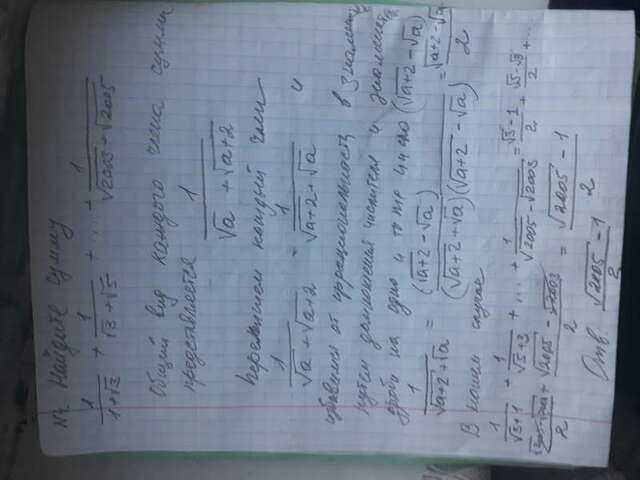 Найдите сумму
1/(1+√3) + 1/(√3+√5) + ... + 1/(√2003+√2005)
Общий вид каждого члена суммы
представляется
1/(√a + √a+2)
Перепишем каждый член
1/(√a + √a+2) = 1/(√a+2 + √a) и
избавимся от иррациональности в знаменат
путем домножения числителя и знаменат
дроби на одно и то же число (√a+2 - √a)
1/(√a+2 + √a) = (√a+2 - √a)/((√a+2 + √a)(√a+2 - √a)) = (√a+2 - √a)/2
В нашем случае
1/(√3+1) + 1/(√5+√3) + ... + 1/(√2005-√2003) = (√3-1)/2 + (√5-√3)/2 + ...
+ (√2005 - √2003)/2 = (√2005 - 1)/2
Отв. (√2005 - 1)/2